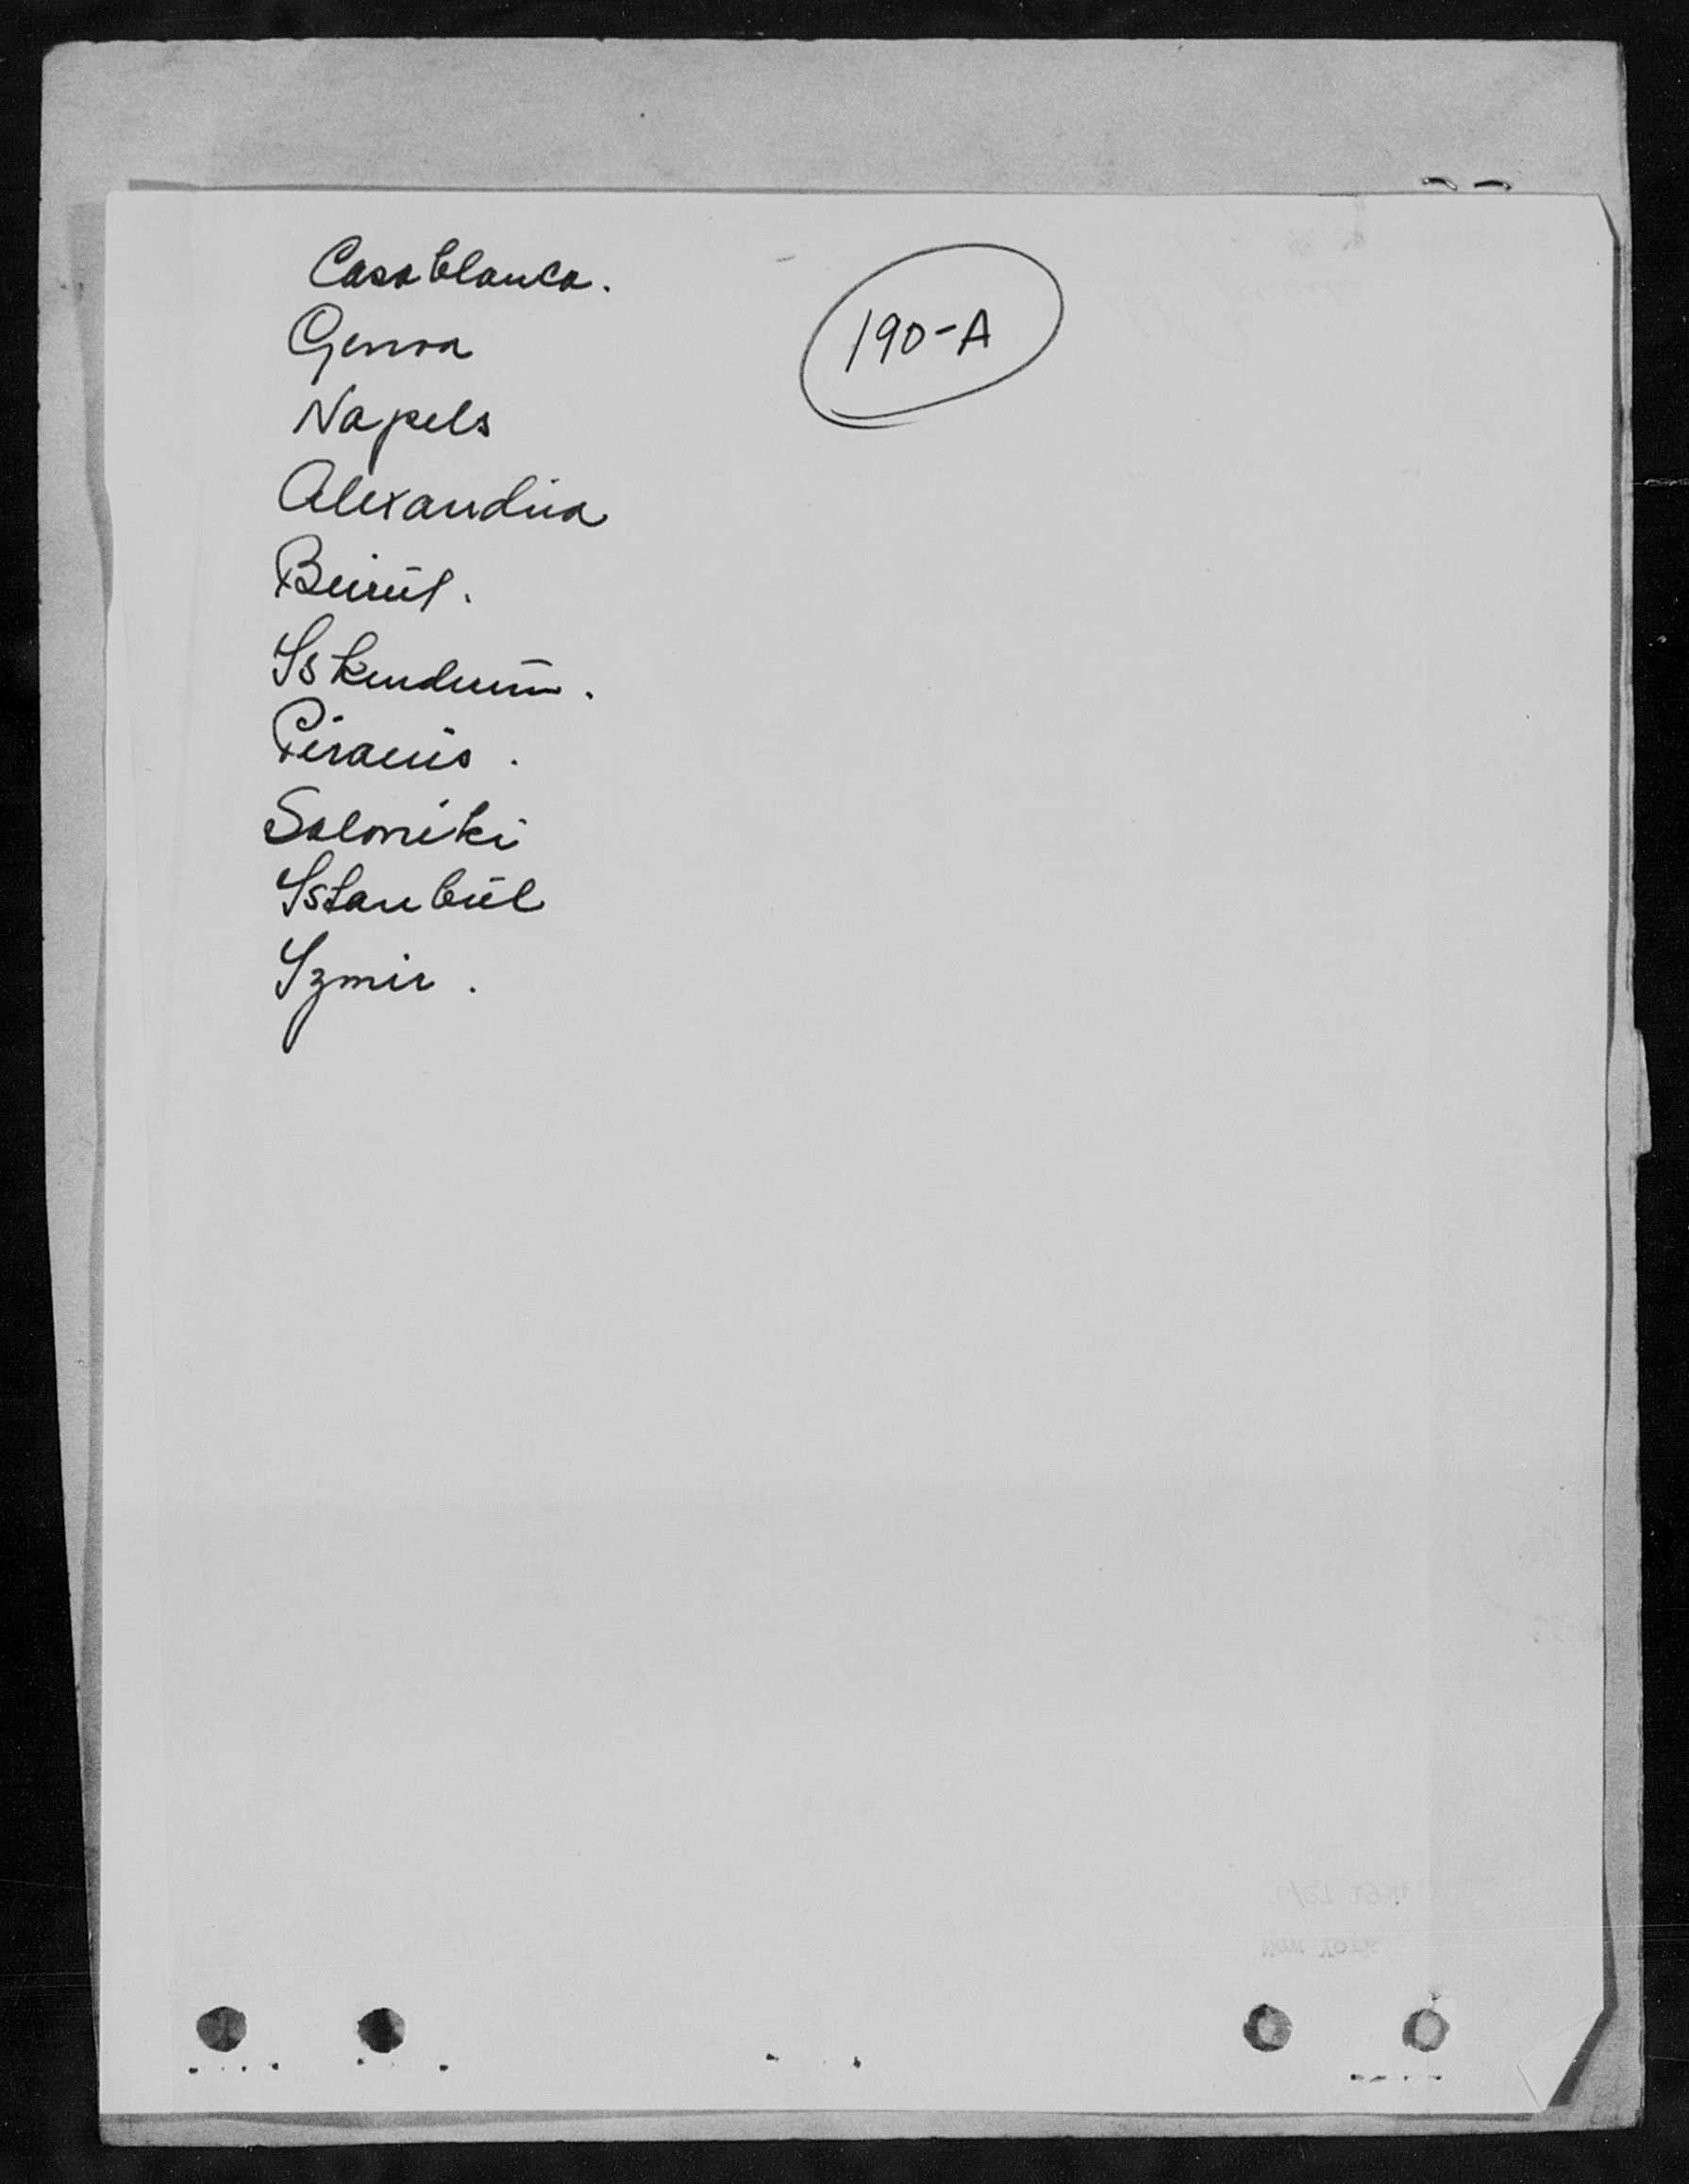 Casablanca.
190-A
Genoa
Napels
Alexandria
Beirut.
Iskenderun.
Piraeus.
Saloniki
Istanbul
Izmir.